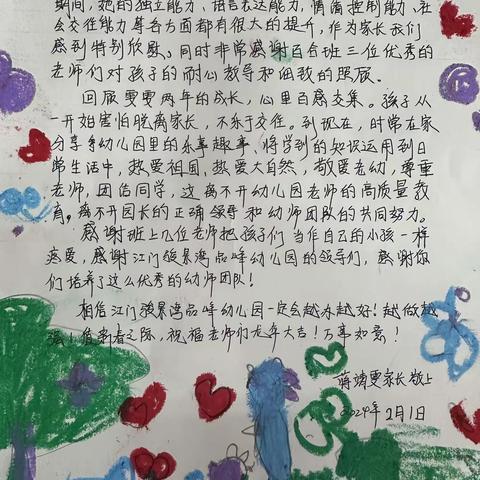 期间，她的独立能力、语言表达能力，情绪控制能力、社
会交往能力等各方面都有很大的提升，作为家长我们
感到特别欣慰。同时非常感谢百合班三位优秀的
老师们对孩子的耐心教导和细致的照顾。
回顾雯雯两年的成长，心里百感交集。孩子从
一开始害怕脱离家长，不乐于交往。到现在，时常在家
分享在幼儿园里的乐事趣事，将学到的知识运用到日
常生活中，热爱祖国，热爱大自然，敬爱老幼，尊重
老师，团结同学，这离不开幼儿园老师的高质量教
育。离不开园长的正确领导和幼师团队的共同努力。
感谢班上几位老师把孩子们当作自己的小孩一样
疼爱，感谢江门骏景湾品峰幼儿园的领导们，感谢你
们培养了这么优秀的幼师团队！
相信江门骏景湾品峰幼儿园一定会越办越好！越做越
强！值新春之际，祝福老师们龙年大吉！万事如意！
蒋靖雯家长敬上
2024年2月1日